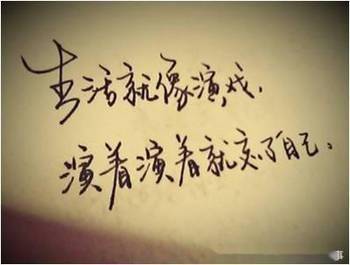 生活就像演戏，
演着演着就忘了自己。
事